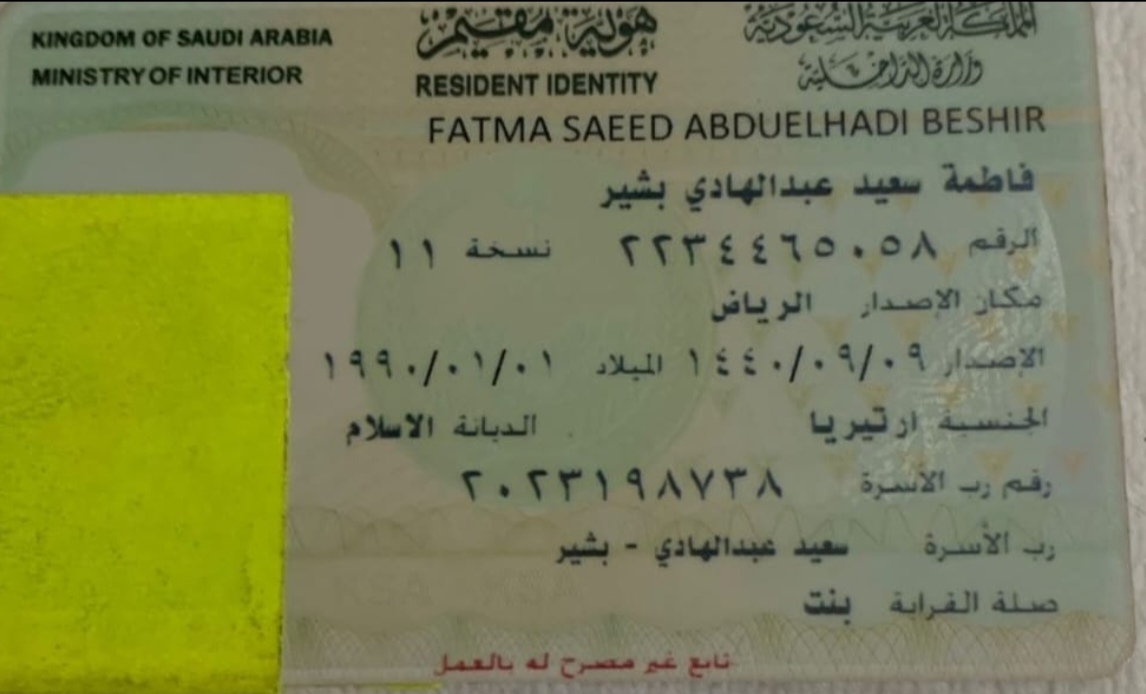 KINGDOM OF SAUDI ARABIA
MINISTRY OF INTERIOR
هوية مقيم
RESIDENT IDENTITY
المملكة العربية السعودية
وزارة الداخلية
FATMA SAEED ABDUELHADI BESHIR
فاطمة سعيد عبدالهادي بشير
الرقم ٢٢٣٤٤٦٥٠٥٨ نسخة ١١
مكان الإصدار الرياض
الإصدار ١٤٤٠/٠٩/٠٩ الميلاد ١٩٩٠/٠١/٠١
الجنسية ارتيريا الديانة الاسلام
رقم رب الأسرة ٢٠٢٣١٩٨٧٣٨
رب الأسرة سعيد عبدالهادي - بشير
صلة القرابة بنت
تابع غير مصرح له بالعمل